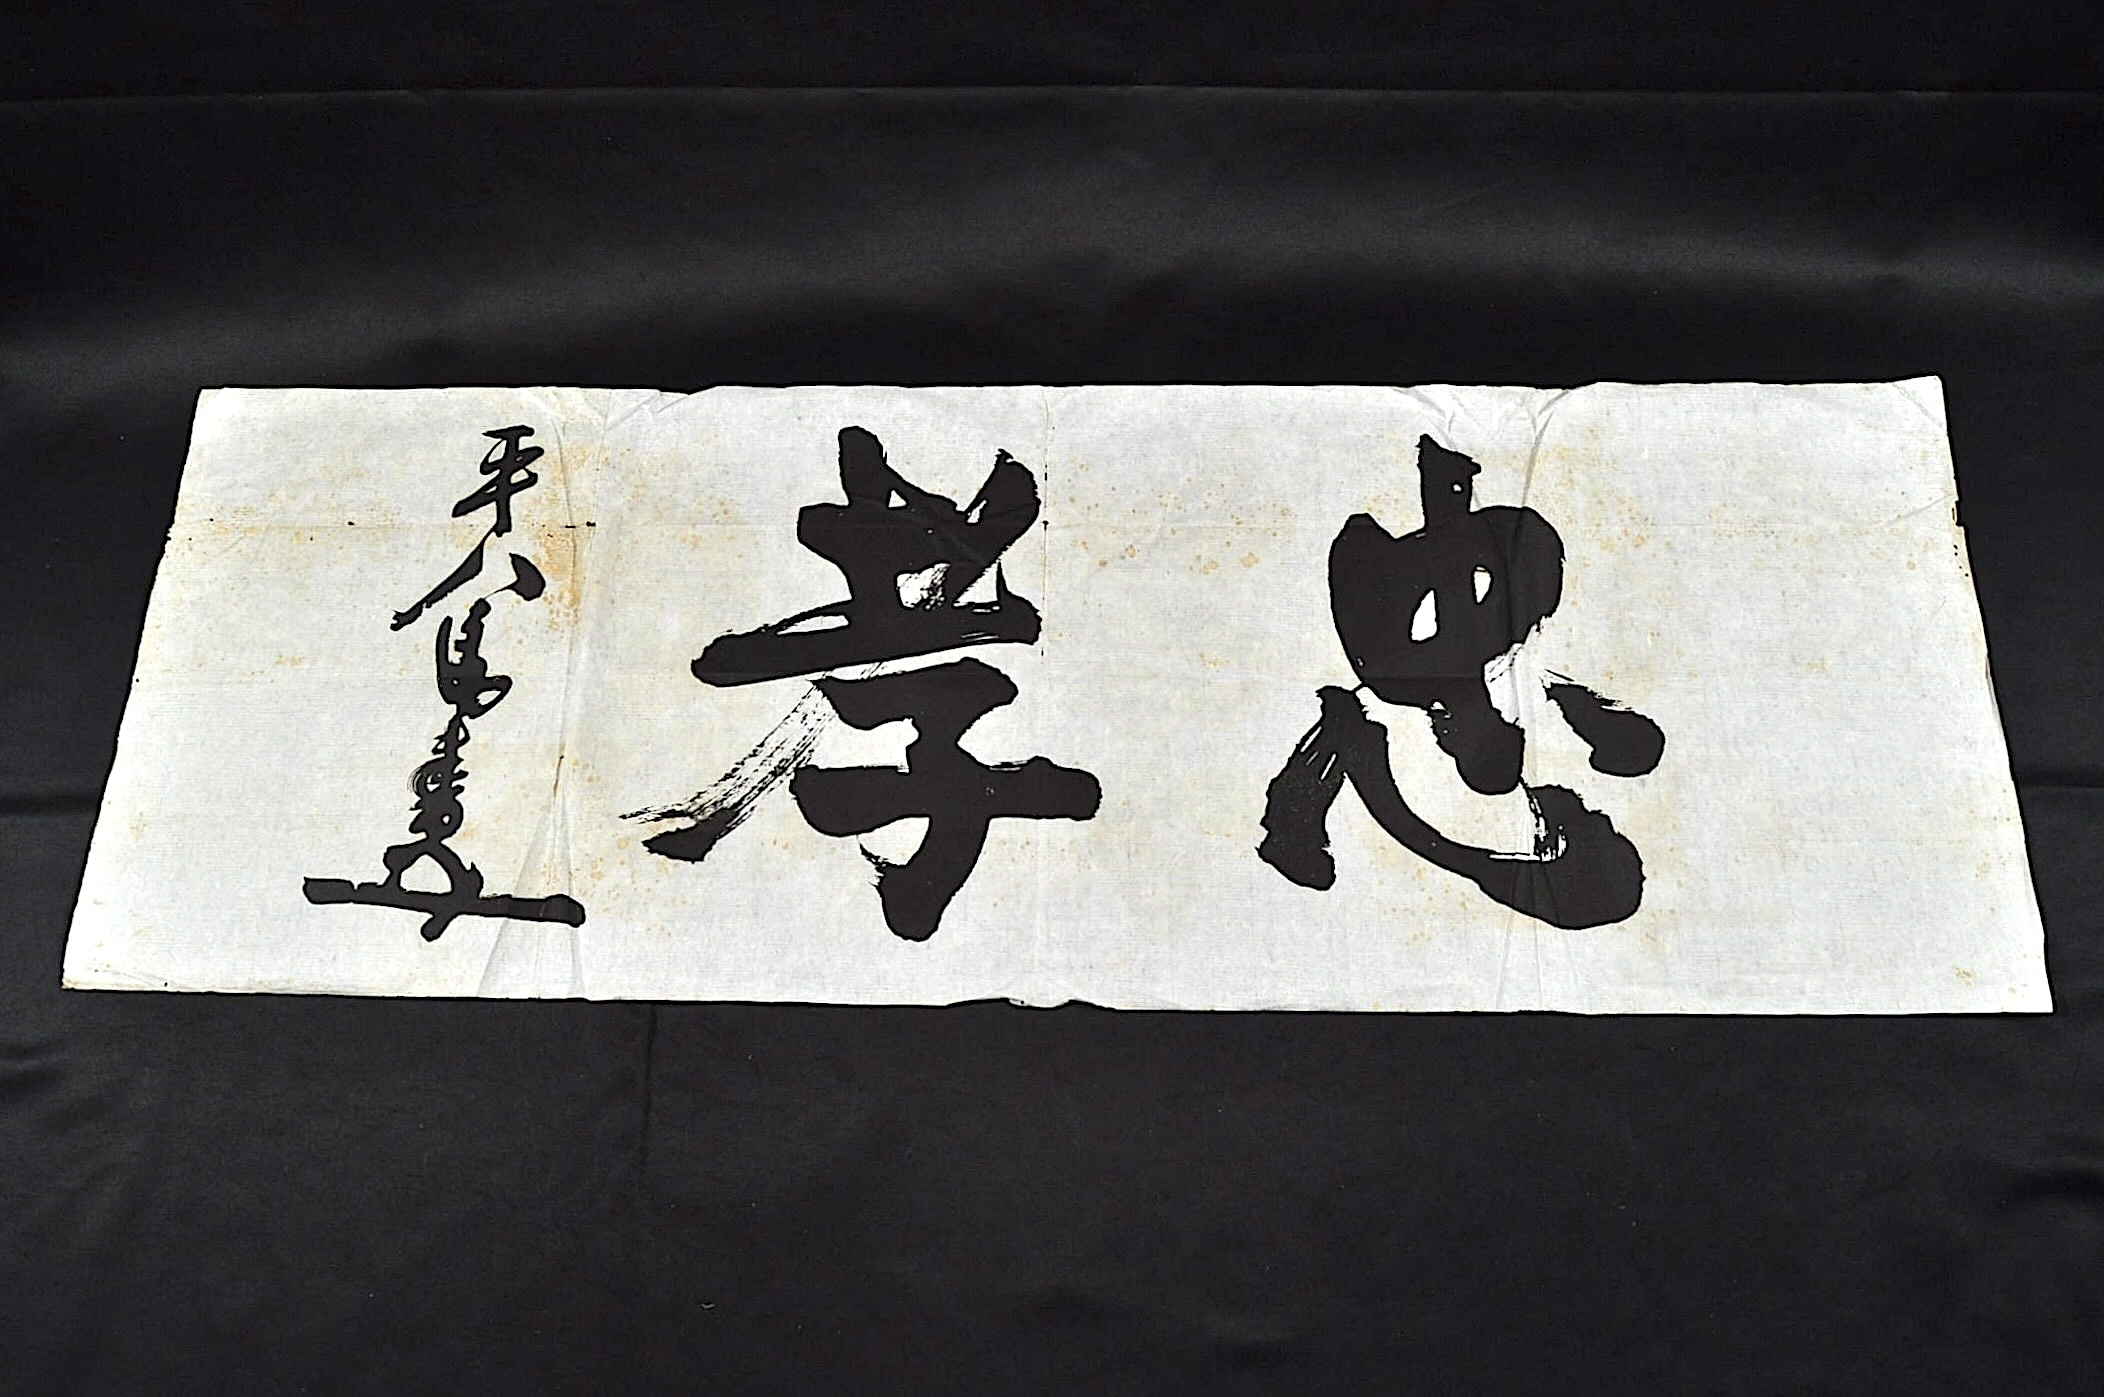 忠孝
平八郎書